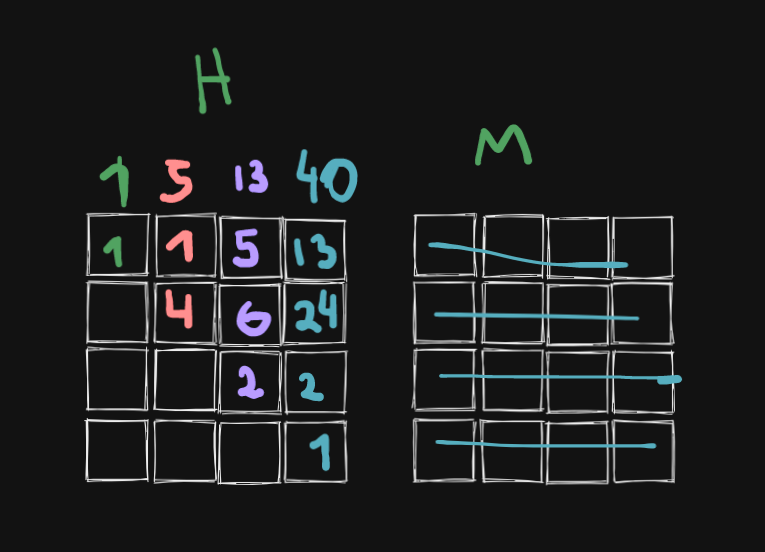 H
M
1 5 13 40
1 1 5 13
4 6 24
2 2
1